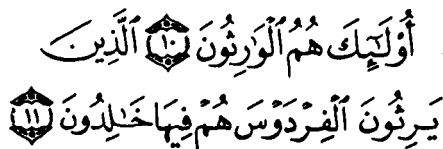 أُوْلَـٰٓئِكَ هُمُ ٱلْوَٰرِثُونَ ١٠ ٱلَّذِينَ
يَرِثُونَ ٱلْفِرْدَوْسَ هُمْ فِيهَا خَـٰلِدُونَ ١١